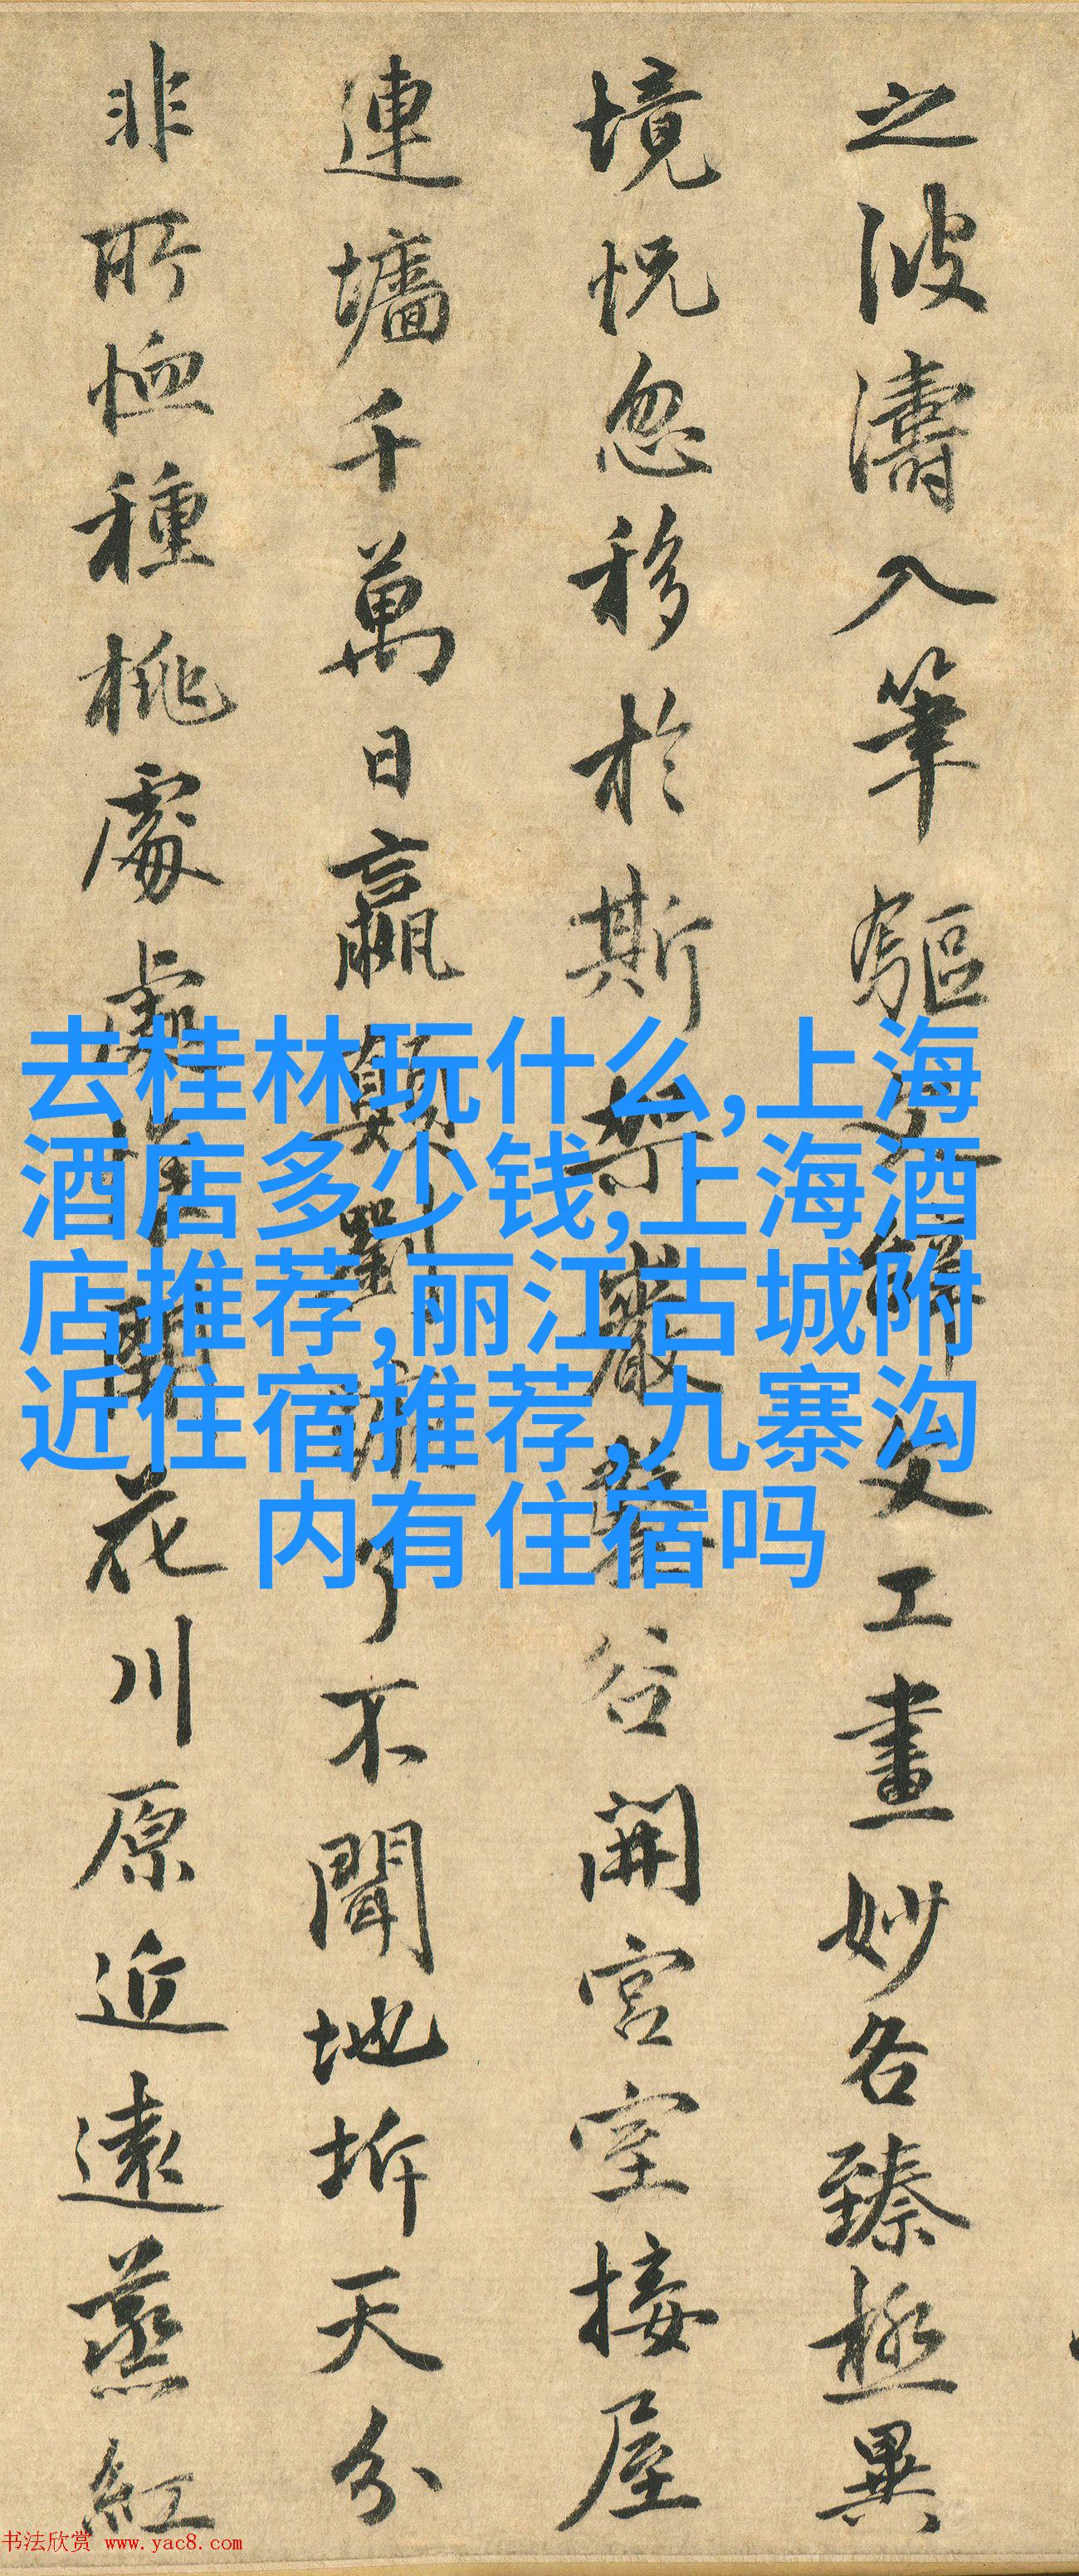 之波濤入筆驅文辭文工畫妙各臻極異
境怳忽移於斯架巖鑿谷開宮室接屋
連墻千萬日嬴顛劉蹶了不聞地坼天分
非所恤種桃處處惟開花川原近遠蒸紅
去桂林玩什么,上海
酒店多少钱,上海酒
店推荐,丽江古城附
近住宿推荐,九寨沟
内有住宿吗
书法欣赏 www.yac8.com